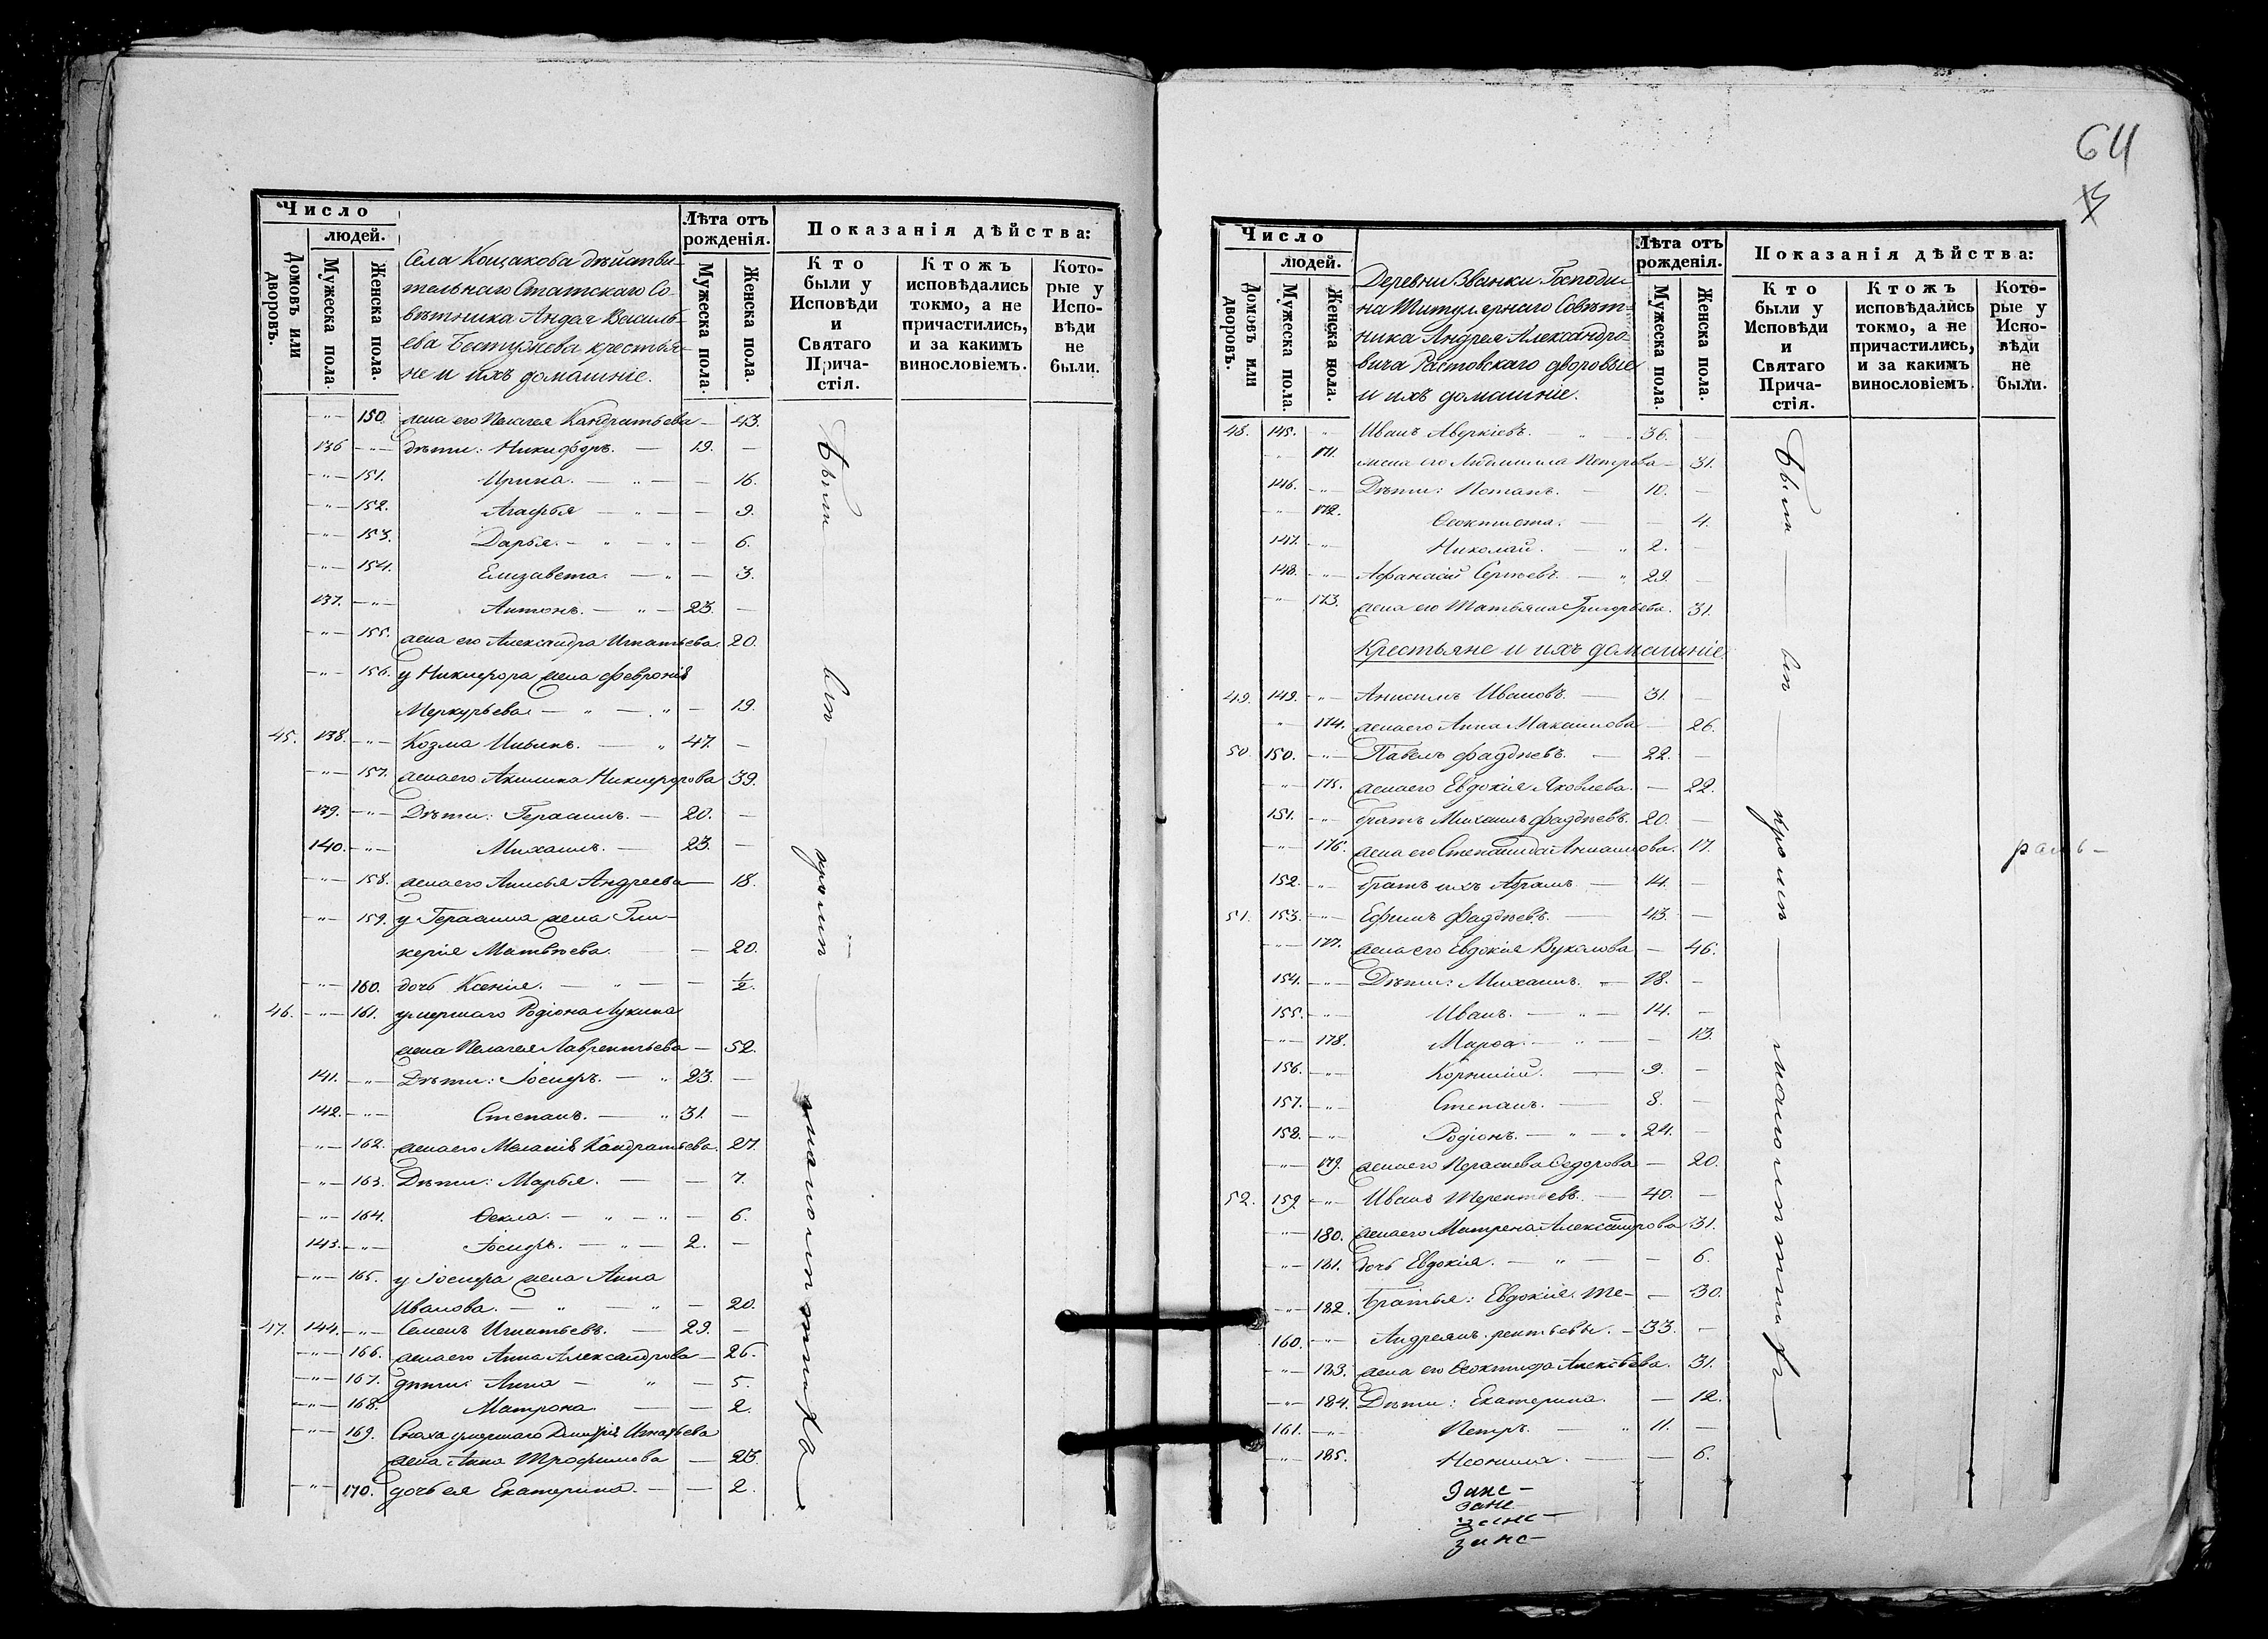 Число
людей.
Домовъ или дворовъ.
Мужеска пола.
Женска пола.
Села Кощакова действи-
тельнаго Статскаго Со-
вѣтника Андрея Василь-
ева Бестужева крестья-
не и ихъ домашніе.
Лѣта отъ рожденія.
Мужеска пола.
Женска пола.
Показанія дѣйства:
Кто были у Исповѣди и Святаго Прича-стія.
Ктожъ исповѣдались токмо, а не причастились, и за какимъ винословіемъ.
Кото-рые у Испо-вѣди не были.
-"- 150. жена его Пелагея Кандратьева — 43.
136 -"- дѣти: Никифоръ. — 19. —
-"- 151. Ирина. — " — — 16.
-"- 152. Агафья — " — — 9.
-"- 153. Дарья. — " — " — 6.
-"- 154. Елизавета. — " — 3.
137. -"- Антонъ. — " — 23. —
-"- 155. жена его Александра Игнатьева. 20.
-"- 156. у Никифора жена Февронія
Меркурьева. — " — " — 19.
45. 138. -"- Козма Ильинъ. — " 47. —
-"- 157. жена его Акилина Никифорова 39.
139. -"- Дѣти: Герасимъ. — 20. —
140. -"- Михаилъ. — 23. —
-"- 158. жена его Анисья Андреева — 18.
-"- 159. у Герасима жена Гли-
керія Матвѣева. — 20.
-"- 160. дочь Ксенія. — " — — ½.
46. -"- 161. умершаго Родіона Лукина
жена Пелагея Лаврентьева — 52.
141. -"- Дѣти: Іосифъ. — " 23. —
142. -"- Степанъ. — " 31. —
-"- 162. жена его Меланія Кандратьева. 27.
-"- 163. Дѣти: Марья. — — 7.
-"- 164. Ѳекла. — " — " — 6.
143. -"- Іосифъ. — " — 2. —
-"- 165. у Іосифа жена Анна
Иванова. — " — " — 20.
47. 144. -"- Семенъ Игнатьевъ. — 29. —
-"- 166. жена его Анна Александрова — 26.
-"- 167. дѣти: Анна — " — 5.
-"- 168. Матрона. — — 2.
-"- 169. Сноха умершаго Дмитрія Игнатьева
жена Анна Трофимова — 23.
-"- 170. дочь ея Екатерина. — — 2.
Были — вси — кромѣ — малолѣтныхъ —
64
Число
людей.
Домовъ или дворовъ.
Мужеска пола.
Женска пола.
Деревни Званки Господи-
на Титулярнаго Совѣт-
ника Андрея Александро-
вича Растовскаго дворовые
и ихъ домашніе.
Лѣта отъ рожденія.
Мужеска пола.
Женска пола.
Показанія дѣйства:
Кто были у Исповѣди и Святаго Прича-стія.
Ктожъ исповѣдались токмо, а не причастились, и за какимъ винословіемъ.
Кото-рые у Испо-вѣди не были.
48. 145. " Иванъ Аверкіевъ. — " — " 36. —
-"- 171. жена его Людмила Петрова — 31.
146. -"- Дѣти: Потапъ. — 10. —
-"- 172. Ѳеоктиста. — — 4.
147. -"- Николай. — " 2. —
148. -"- Афанасій Сергѣевъ. — " 29. —
-"- 173. жена его Татьяна Григорьева. 31.
Крестьяне и ихъ домашніе.
49. 149. -"- Анисимъ Ивановъ. — 31. —
" 174. жена его Анна Максимова — 26.
50. 150. -"- Павелъ Фаддѣевъ. — 22. —
-"- 175. жена его Евдокія Яковлева. — 22.
151. -"- братъ Михаилъ Фаддѣевъ. 20. —
-"- 176. жена его Степанида Анисимова. 17.
152. -"- братъ ихъ Абрамъ. — 14. —
51. 153. -"- Ефимъ Фаддѣевъ. — 43. —
-"- 177. жена его Евдокія Вуколова — 46.
154. -"- Дѣти: Михаилъ. — 18. —
155. -"- Иванъ. — " — 14. —
-"- 178. Марѳа. — " — — 13.
156. -"- Корнилій. — 9. —
157. -"- Степанъ. — 8. —
158. -"- Родіонъ. — " — " 24. —
-"- 179. жена его Перасцева Ѳедорова — 20.
52. 159 -"- Иванъ Терентьевъ. — 40. —
-"- 180. жена его Матрена Александрова 31.
-"- 181. дочь Евдокія. — " — — 6.
-"- 182. братья: Евдокія. Те- — 30.
160. -"- Андреянъ. рентьевы. — 33. —
-"- 183. жена его Ѳеоктиста Алексѣева. 31.
-"- 184. Дѣти: Екатерина. — 12.
161. -"- Петръ. — " 11. —
-"- 185. Неонила. — — 6.
Были — вси — кромѣ — малолѣтныхъ —